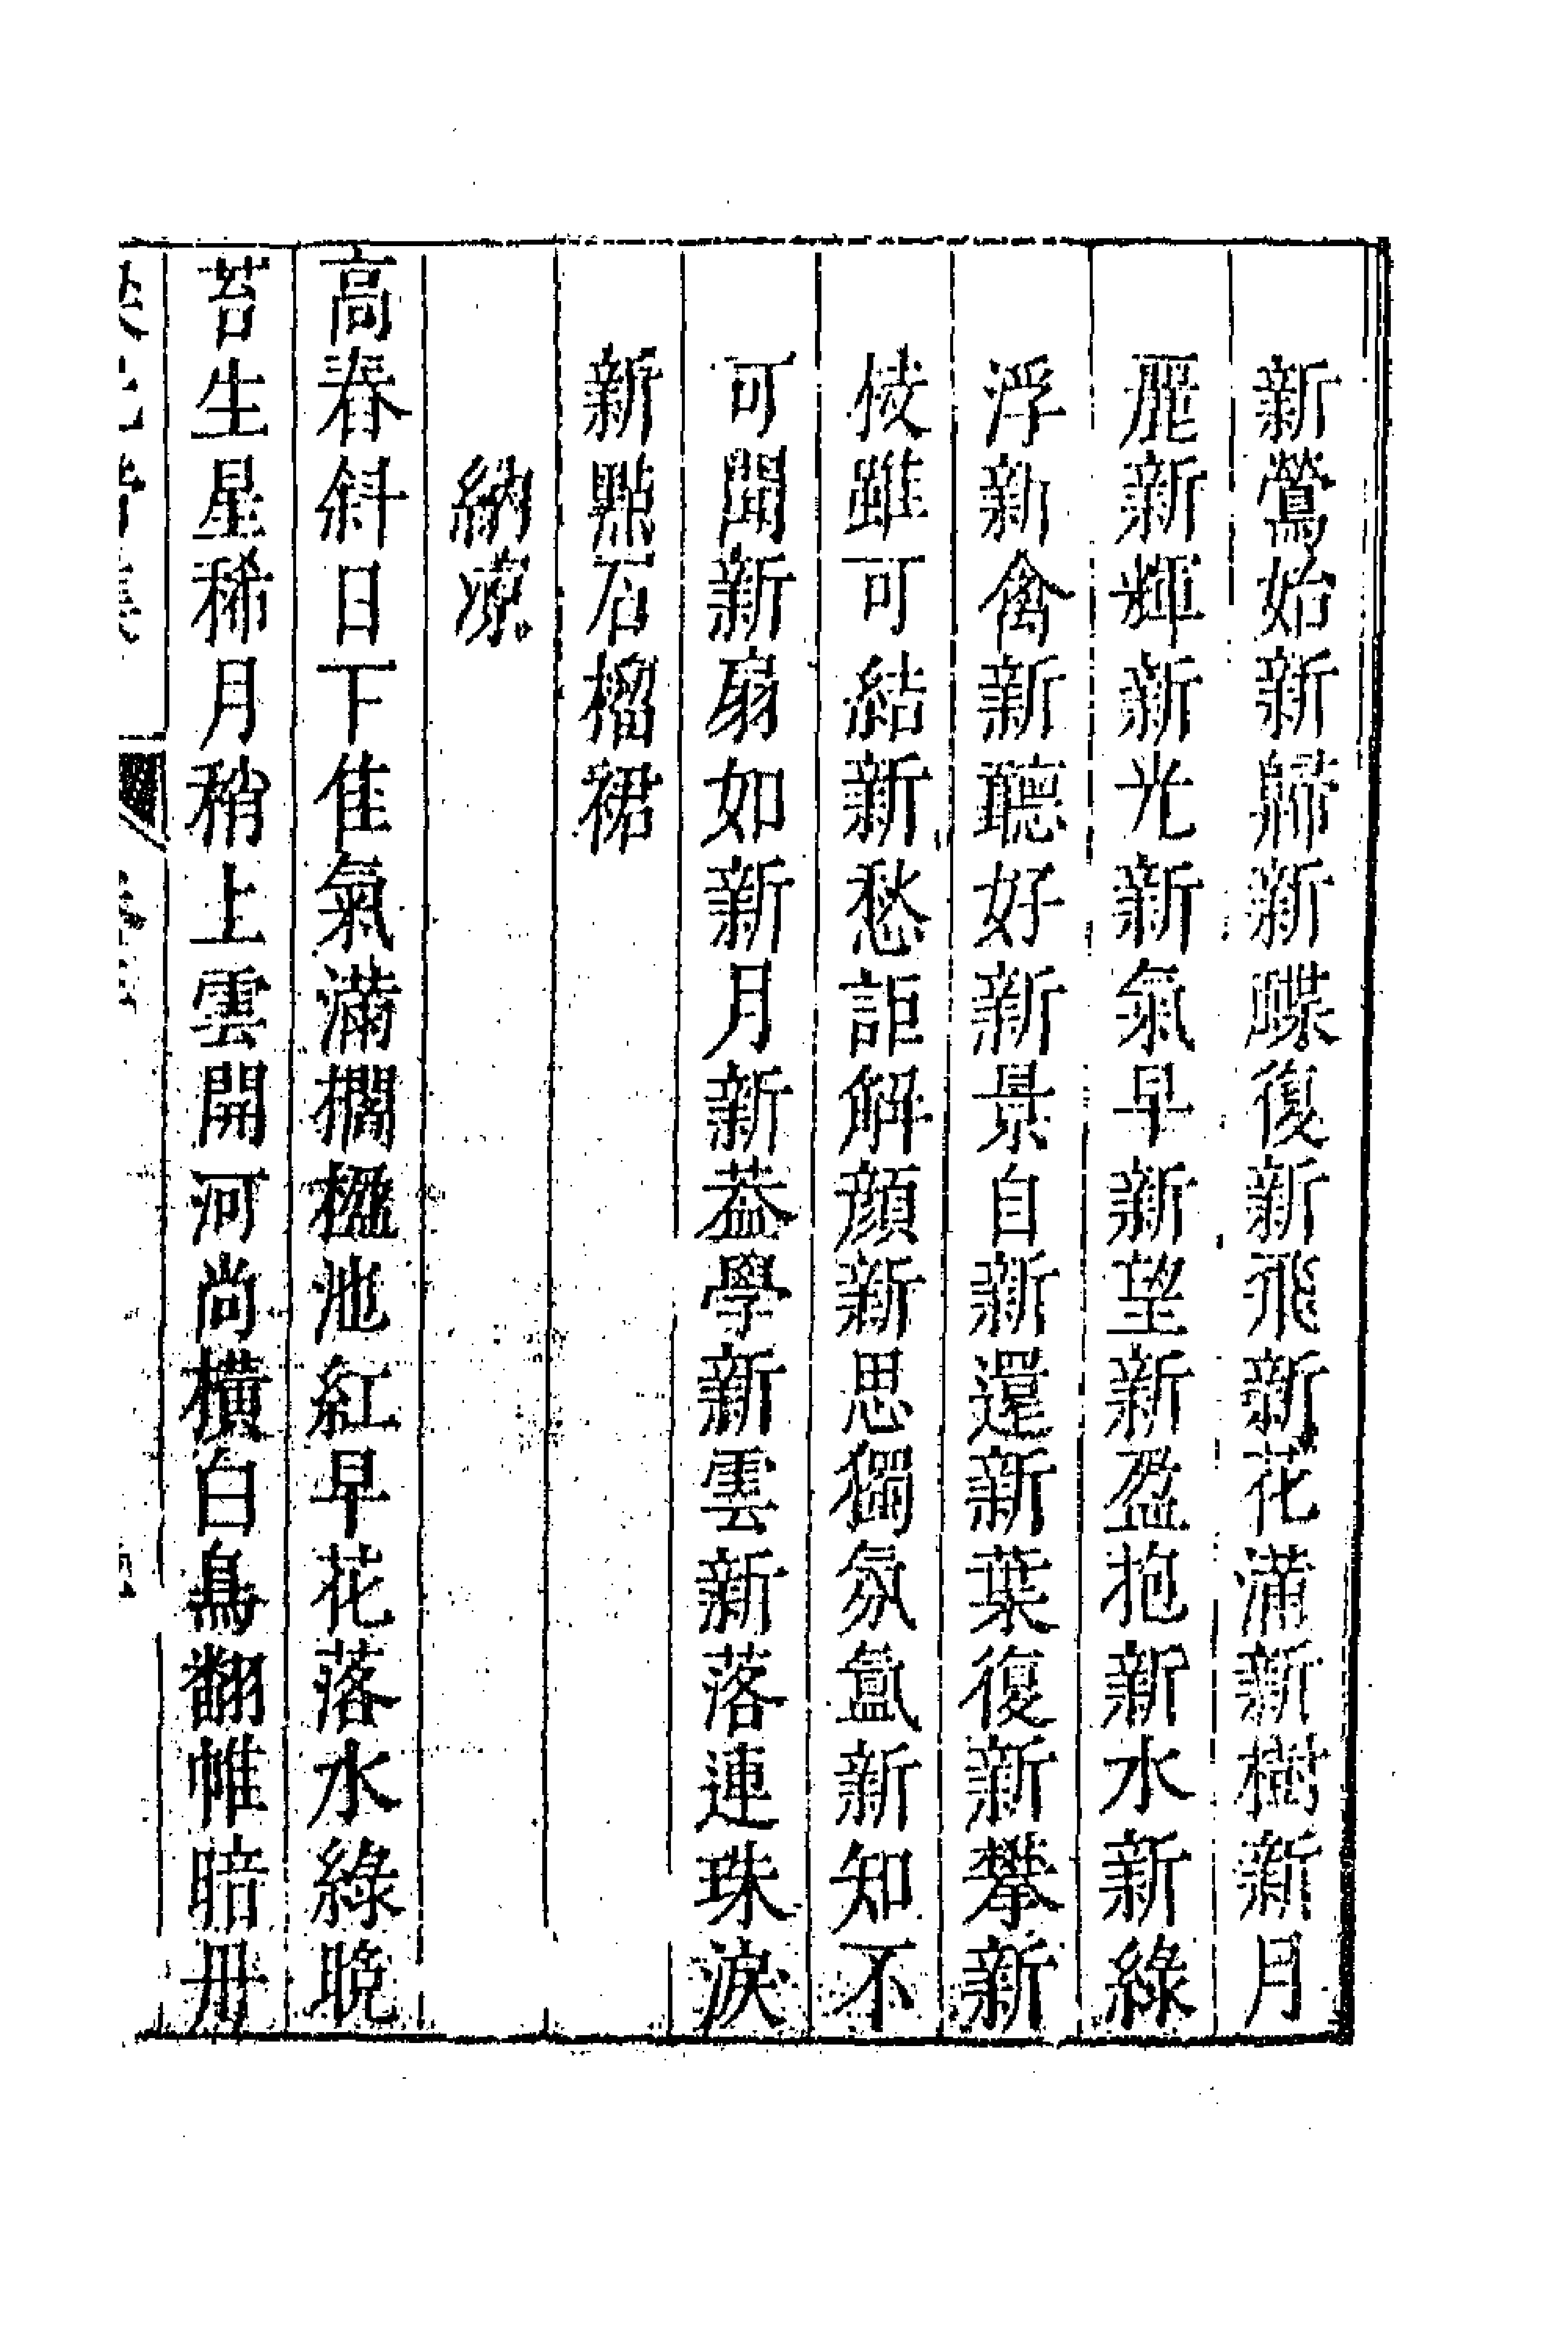 新鶯始新歸新蝶復新飛新花滿新樹新月
麗新輝新光新氣早新望新盈抱新水新綠
浮新禽新聽好新景自新還新葉復新攀新
枝雖可結新愁詎解顏新思獨氛氳新知不
可聞新扇如新月新葢學新雲新落連珠淚
新點石榴裙
納凉
高春斜日下隹氣滿欄楹池紅早花落水綠晚
苔生星稀月稍上雲開河尚橫白鳥翻帷暗丹